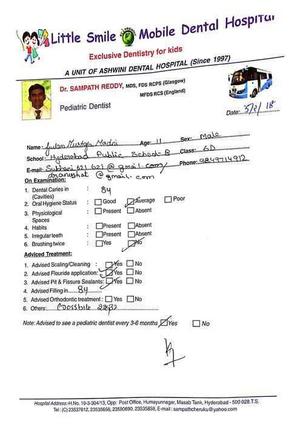 Little Smile Mobile Dental Hospital
Exclusive Dentistry for kids
A UNIT OF ASHWINI DENTAL HOSPITAL (Since 1997)
Dr. SAMPATH REDDY, MDS, FDS RCPS (Glasgow)
MFDS RCS (England)
Pediatric Dentist
Date: 5/2/18
Name: Age: 11 Sex: Male
School: Hyderabad Public School-B Class: 6D
E-mail: Phone: 9849714912
@gmail.com
On Examination:
1. Dental Caries in 84
(Cavities)
2. Oral Hygiene Status Good Average Poor
3. Physiological Present Absent
Spaces
4. Habits Present Absent
5. Irregular teeth Present Absent
6. Brushing twice Yes No
Adviced Treatment:
1. Advised Scaling/Cleaning: Yes No
2. Advised Flouride application: Yes No
3. Advised Pit & Fissure Sealants: Yes No
4. Advised Filling in 84
5. Advised Orthodontic treatment: Yes No
6. Others:
Note: Advised to see a pediatric dentist every 3-6 months Yes No
Hospital Address: H.No. 19-3-904/13, Opp: Post Office, Humayunnagar, Masab Tank, Hyderabad - 500 028 T.S.
Tel: (C) 23537612, 23535656, 23590890, 23535858, E-mail: sampathcheruku@yahoo.com